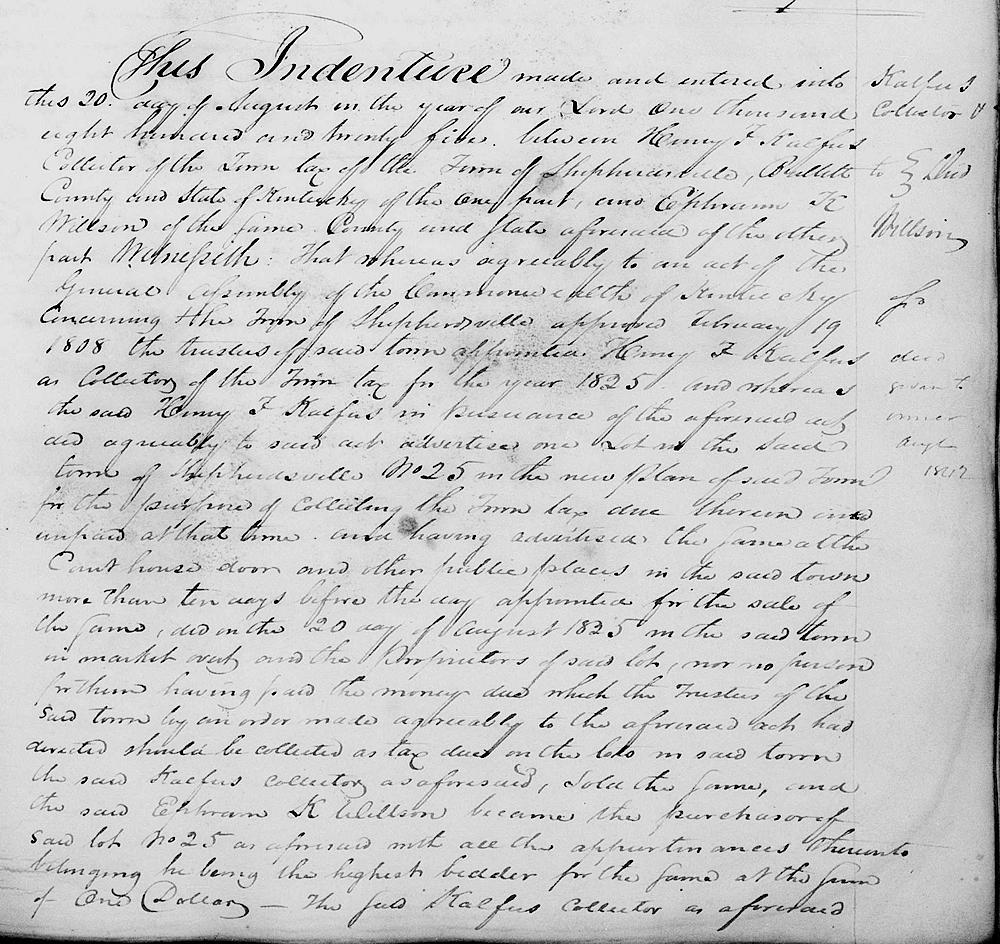 This Indenture made and entered into
this 20. day of August in the year of our Lord One thousand
eight hundred and twenty five. between Henry F Kalfus
Collector of the Town tax of the Town of Shepherdsville, Bullitt
County and State of Kentucky of the one part, and Ephraim K
Willson of the same County and State aforesaid of the other
part Witnesseth: That whereas agreeably to an act of the
General Assembly of the Commonwealth of Kentucky
Concerning the Town of Shepherdsville approved February 19
1808 the trustees of said town appointed Henry F Kalfus
as Collector of the Town tax for the year 1825. and whereas
the said Henry F Kalfus in pursuance of the aforesaid act
did agreeably to said act advertise one Lot in the said
town of Shepherdsville No 25 in the new plan of said Town
for the purpose of collecting the Town tax due thereon and
unpaid at that time. and having advertised the same at the
Court house door and other public places in the said town
more than ten days before the day appointed for the sale of
the same, did on the 20 day of August 1825 in the said town
in market overt and the proprietors of said lot, nor no person
for them having paid the money due which the Trustees of the
said town by an order made agreeably to the aforesaid act had
directed should be collected as tax due on the lots in said town
the said Kalfus collector as aforesaid, sold the same, and
the said Ephraim K Willson became the purchasor of
said lot No 25 as aforesaid with all the appurtinances thereunto
belonging he being the highest bidder for the same at the sum
of One Dollar — The said Kalfus collector as aforesaid
Kalfus
Collector
to Deed
Willson
deed
given to
owner
Augt